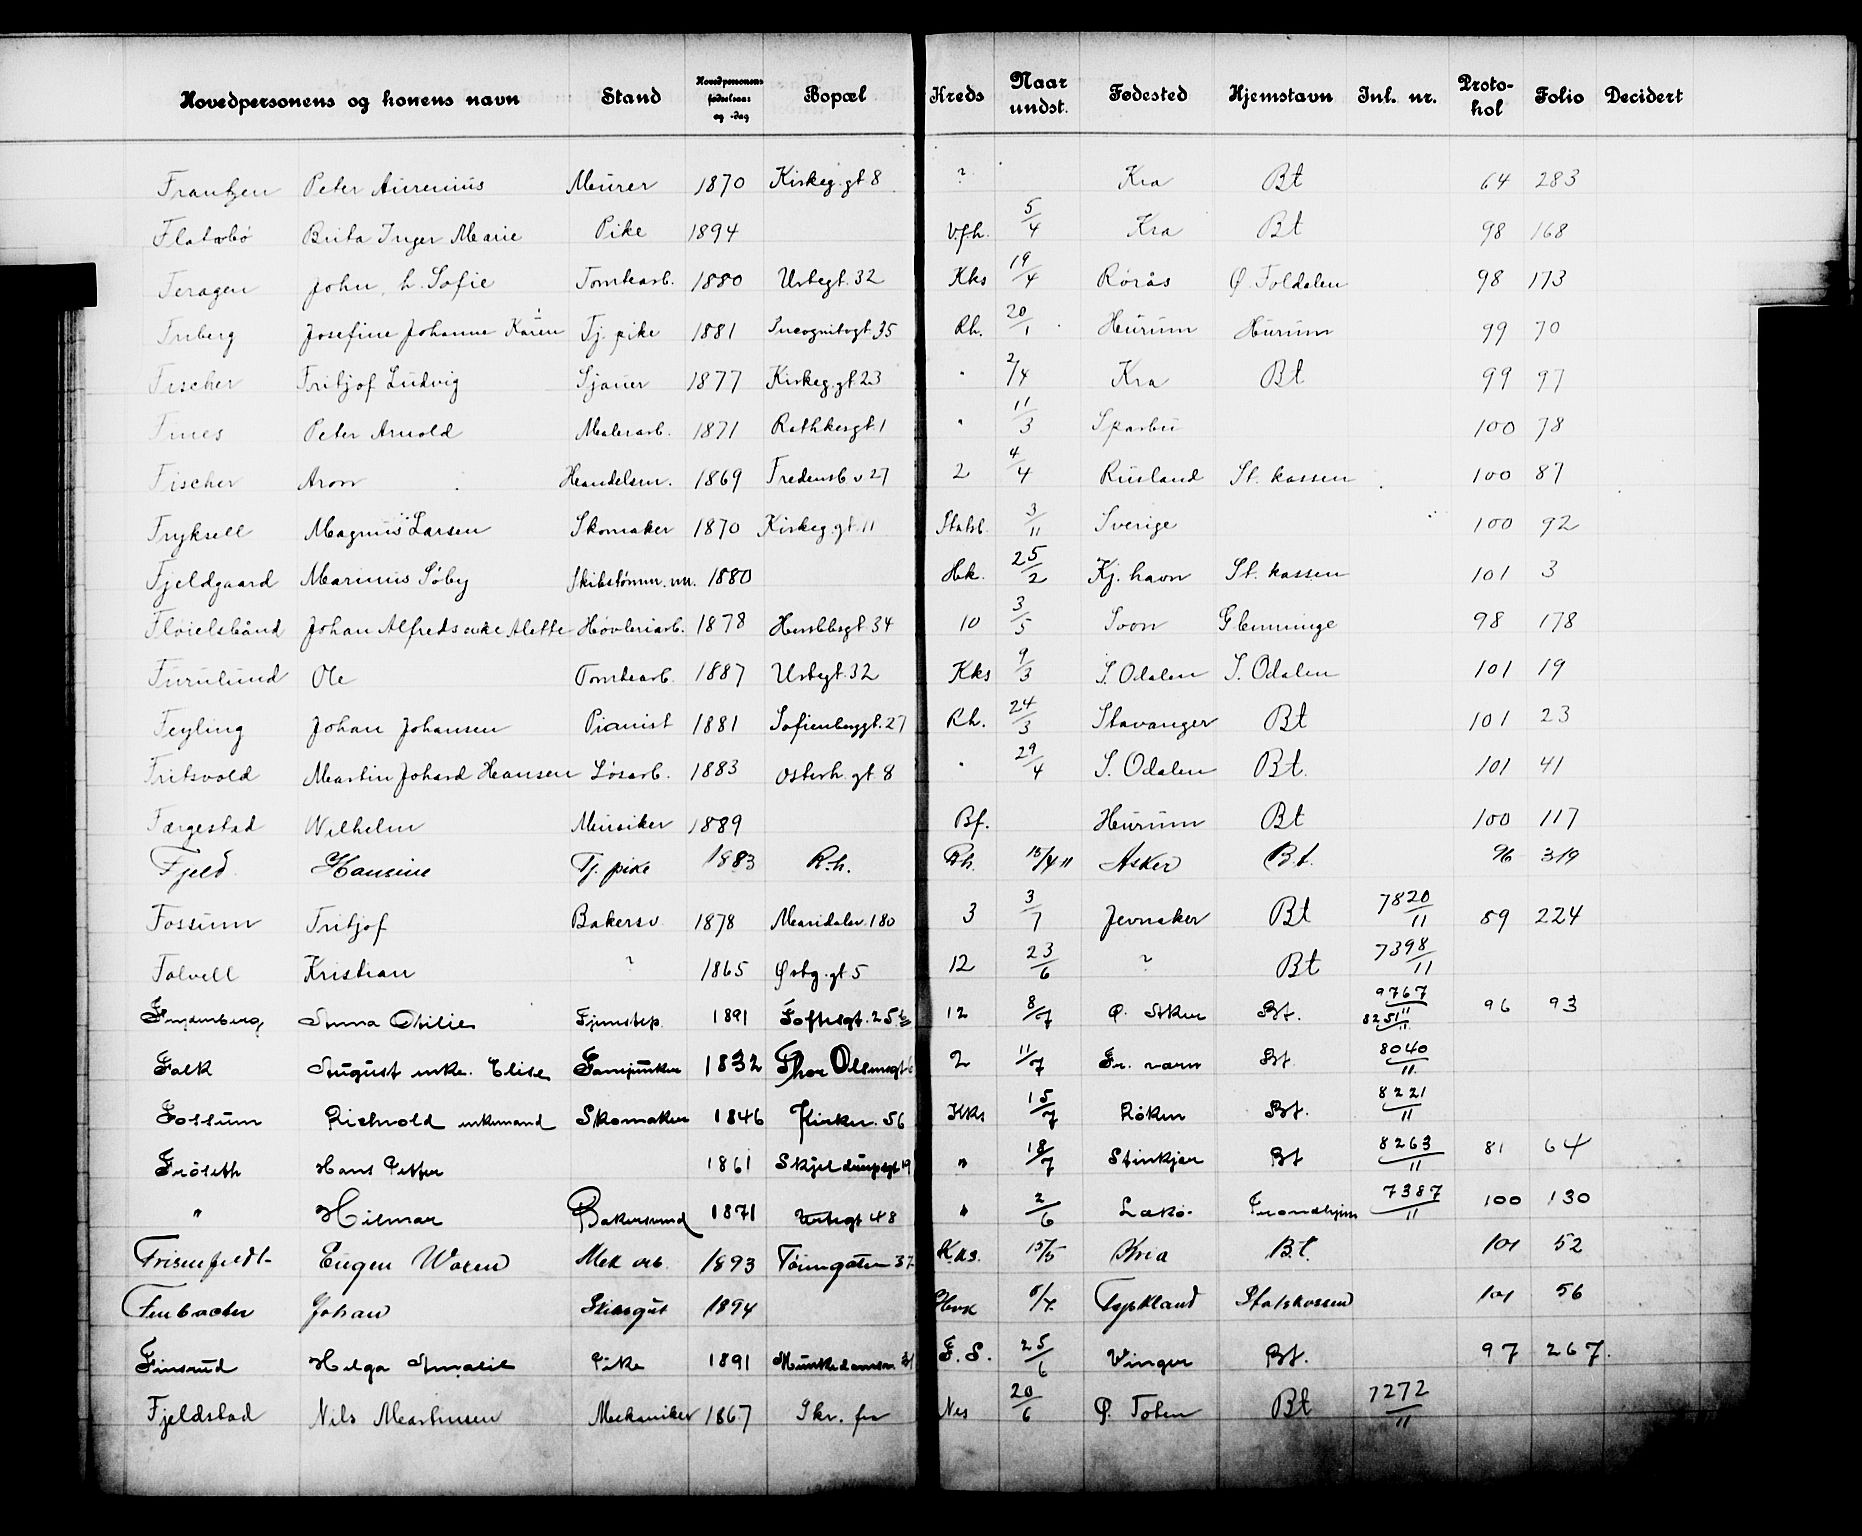 Hovedpersonens og konens navn Stand Hovedpersonens fødselsaar og -dag Bopæl Kreds Naar undst. Fødested Hjemstavn Inl. nr. Protokol Folio Decidert
Frantzen Peter Aurenius Murer 1870 Kirkeg.gt 8 ? Kra Bt 64 283
Flatabø Brita Inger Marie Pike 1894 V.f.h. 5/4 Kra Bt 98 168
Feragen John, h. Sofie Tomtearb. 1880 Urtegt. 32 Kks 19/4 Rørås Ø. Foldalen 98 173
Friberg Josefine Johanne Karen Tj. pike 1881 Incognitogt. 35 Rh. 20/1 Hurum Hurum 99 70
Fischer Fritjof Ludvig Sjauer 1877 Kirkeg.gt 23 " 2/4 Kra Bt 99 97
Fines Peter Arnold Malerarb. 1871 Rathkesgt. 1 " 11/3 Sparbu 100 78
Fischer Aron Handelsm. 1869 Fredensb.v 27 2 4/4 Rusland St. kassen 100 87
Fryksell Magnus Larsen Skomaker 1870 Kirkeg.gt. 11 Statsb. 3/11 Sverige 100 92
Fjeldgaard Marinus Søby Skibstømm.m. 1880 Hk. 25/2 Kj.havn St. kassen 101 3
Fløielsbånd Johan Alfreds enke Alette Høvleriarb. 1878 Herslebsgt 34 10 3/5 Soon Glemminge 98 178
Furulund Ole Tomtearb. 1887 Urtegt. 32 Kks 9/3 S. Odalen S. Odalen 101 19
Feyling Johan Johansen Pianist 1881 Sofienberggt. 27 Rh. 24/3 Stavanger Bt 101 23
Fritsvold Martin Johard Hansen Løsarb. 1883 Osterh.gt. 8 " 29/4 S. Odalen Bt. 101 41
Færgestad Wilhelm Musiker 1889 Bf. Hurum Bt 100 117
Fjeld Hansine Tj. pike 1883 R.h. Rh. 18/4 11 Asker B.t. 96 319
Fossum Fritjof Bakersv 1878 Maridalsv. 180 3 3/7 Jevnaker Bt 7820/11 89 224
Folvell Kristian ? 1865 Østg.gt 5 12 23/6 ? Bt 7398/11
Anna Otilie Tjenestep 1891 Toftesgt. 25 12 8/7 Ø. Aker Bt. 9767/11 8251/11 96 93
Falk August enke. Elise 1832 Thor Olsensgt 6 2 11/7 Fr. værn Bt. 8040/11
Fossum Richvold enkemand Skomaker 1846 56 Kks 15/7 Røken Bt. 8221/11
Frøseth Hans Petter 1861 19 " 18/7 Stenkjær Bt 8263/11 81 64
" Hilmar Bakersvend 1871 Urtegt 48 " 2/6 Lekø. Trondhjem 7387/11 100 130
Frisenfeldt Eugen Waren Mek arb. 1893 Tøiengaten 37 Kks. 15/5 Kria B.t. 101 52
Johan Skibsgut 1894 5/4 Tyskland Statskassen 101 56
Finsrud Helga Amalie Pike 1891 Munkedamsv 31 F. S. 25/6 Vinger Bt. 97 267.
Fjeldstad Nils Martinsen Mekaniker 1867 Skr. fra Nes 20/6 Ø. Toten Bt 7272/11